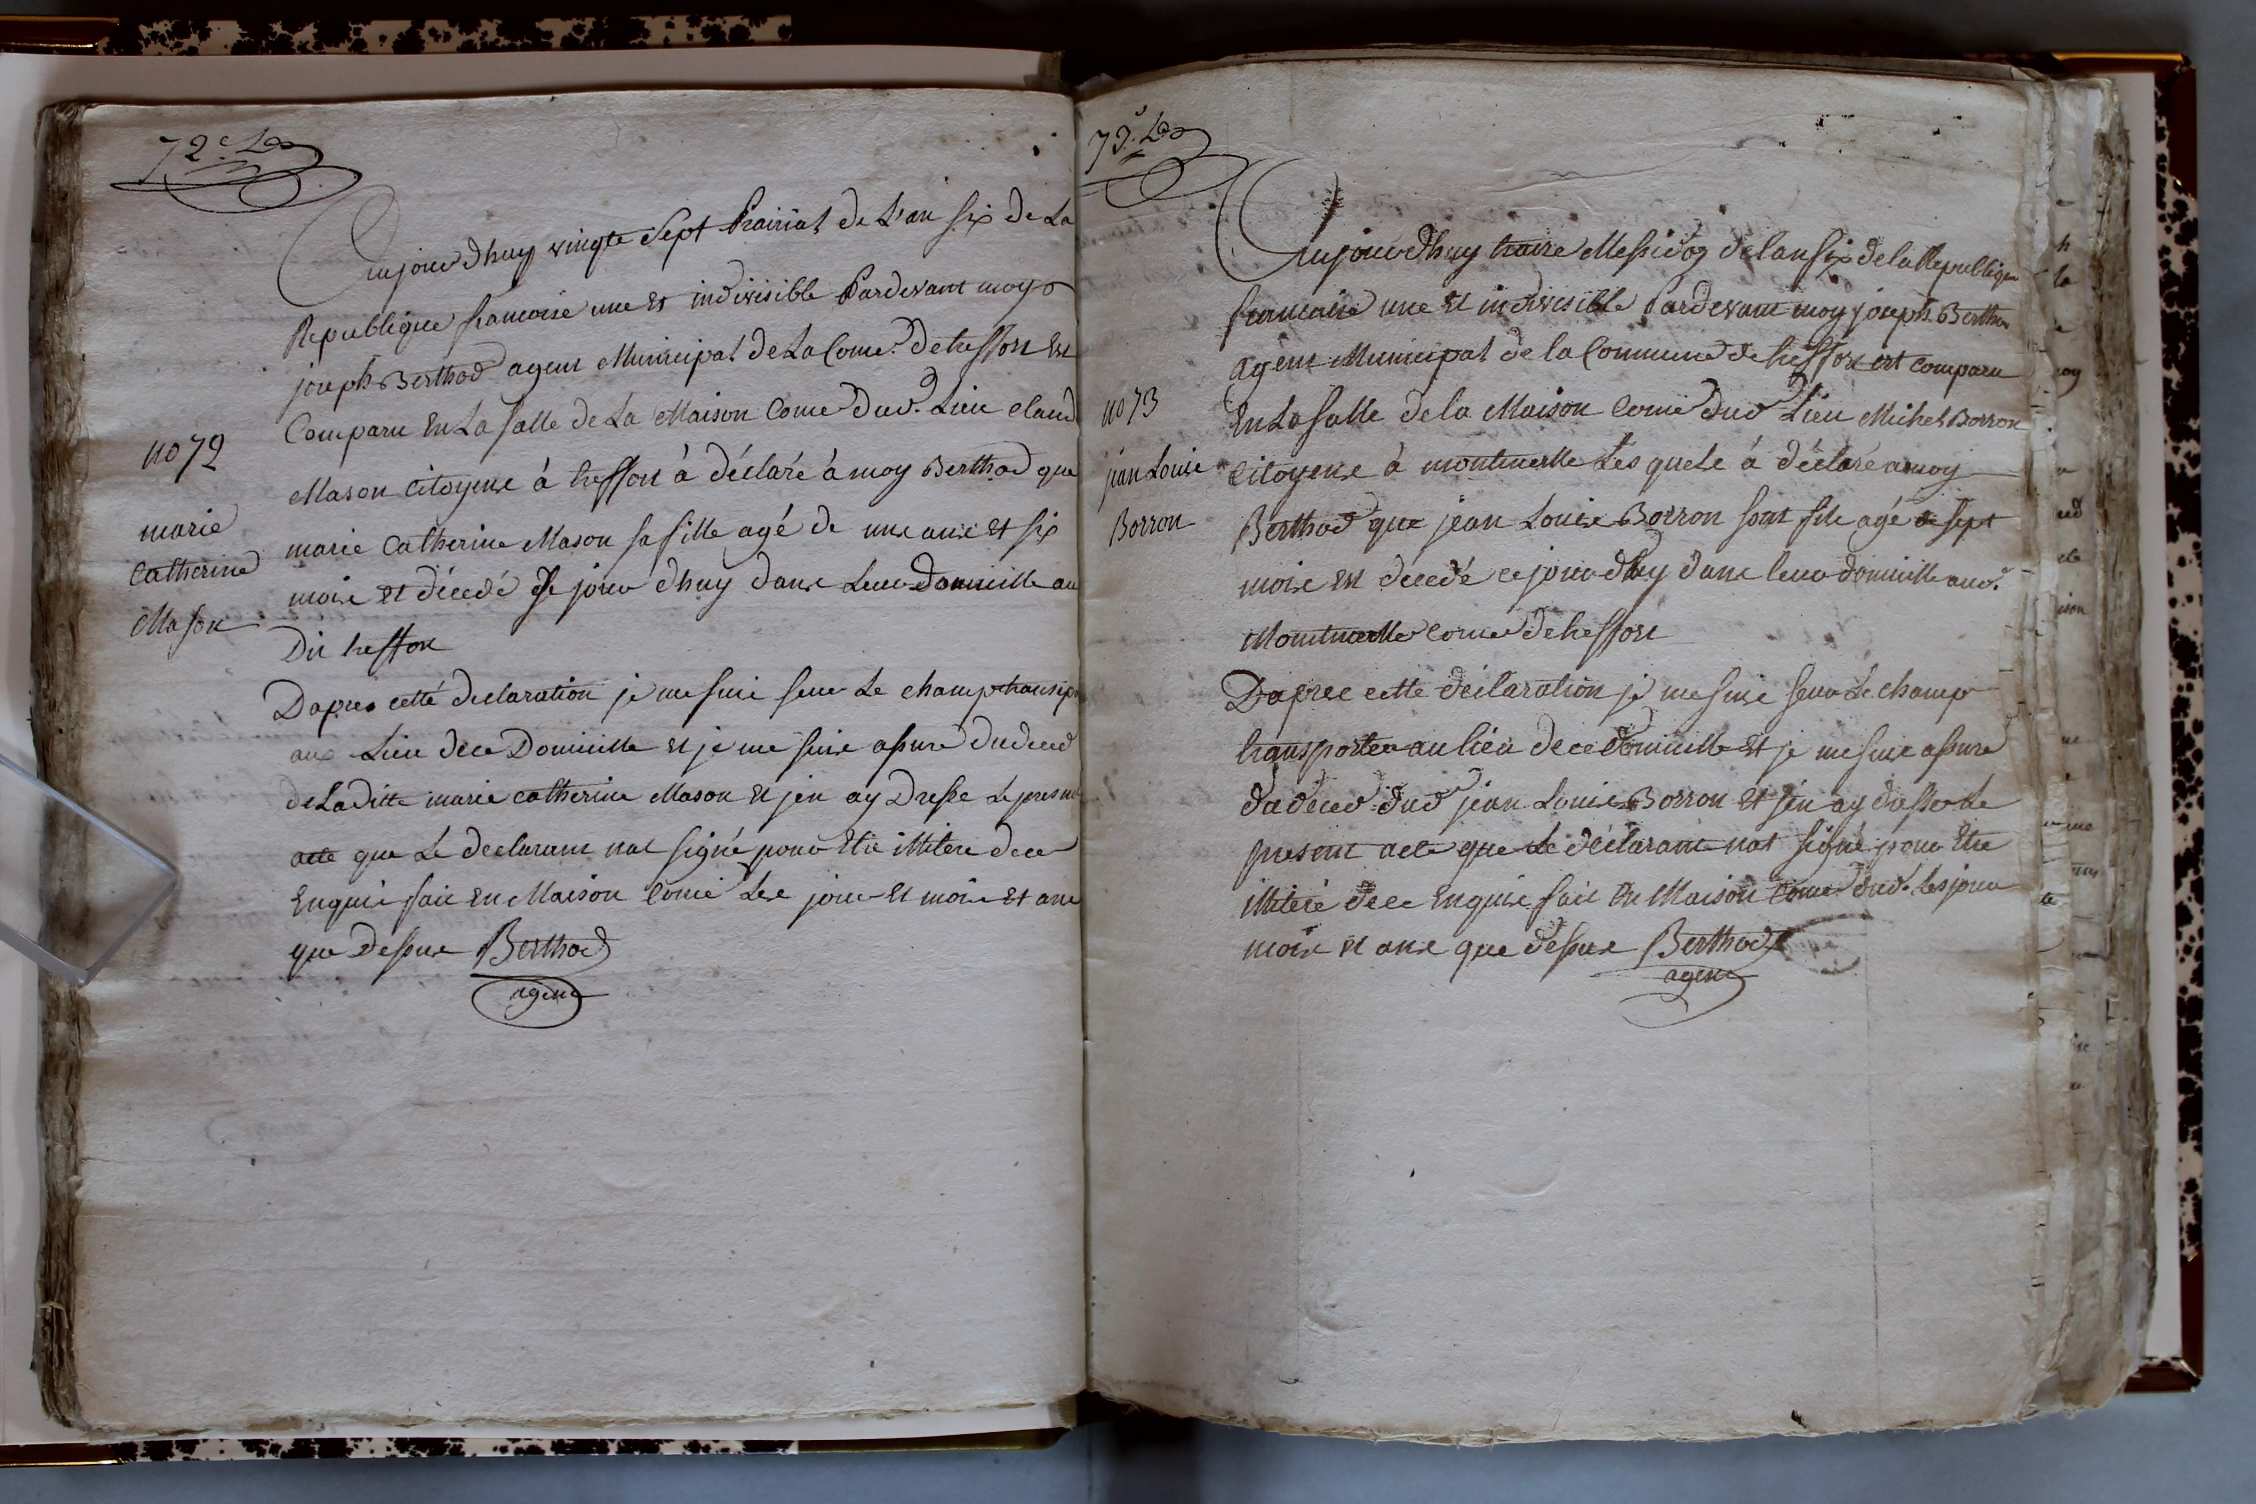 72e
Aujourdhuy vingte Sept Prairial de L'an six de La
Republique francoise une et indivisible Pardevant moy
joseph Berthod agent Municipal de La Come. de treffort Est
Comparu En La Salle de La Maison Come Dud. Lieu claud
Mason Citoyens à treffort à déclaré à moy Berthod que
marie Catherine Mason sa fille agé de une ans et six
mois et décedé Se jour dhuy dans Leur Domicille au
Dit treffort
Dapres cetté declaration je me suis seur Le champ
aux Lieu de ce Domicille et je me suis assure du deced
de Laditte marie catherine Mason et jen ay Dresse Le present
acte que Le declarant nat signé pour Etre illitere de ce
Enquis fait En Maison Come Les jour et mois et ans
que Dessus Berthod
agent
no 72
marie
Catherine
Mason
73e
Aujourdhuy traize Messidor de lan six de la Republique
francaise une et indivisible Pardevant moy joseph Berthod
agent Municipal de la Commune de treffort est comparu
En La Salle de la Maison Come dud Lieu Michel Borron
Citoyens à montmerle Les quele à déclaré a moy
Berthod que jean Louis Borron sont fils agé de sept
mois est decedé ce jour dhuy dans leur domicille aud.
Montmerle Come de treffort
Dapres cette déclaration je me suis seur Le champ
transporter au lieu de ce Domicille et je me suis assure
du deced dud jean Louis Borron et jen ay dresser Le
present acte que Le déclarant nat signé pour Etre
illiteré de ce Enquis fait En Maison Come dud. Les jour
mois et ans que dessus Berthod
agent
no 73
jean Louis
Borron